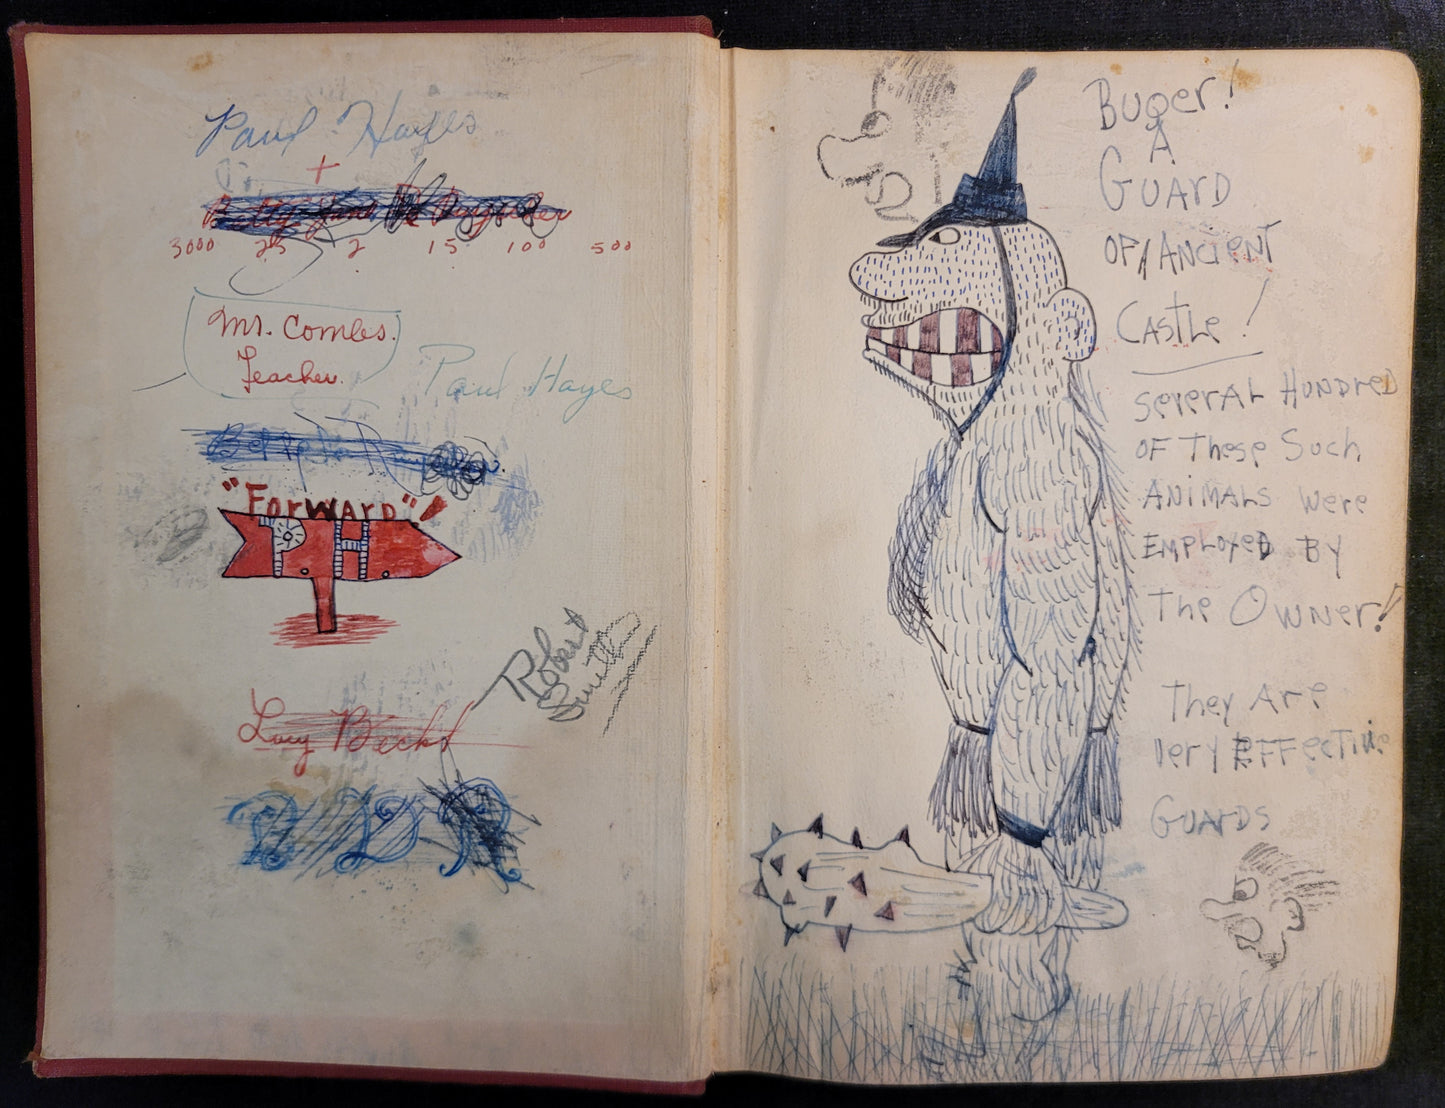 Paul Hayes
+
3000 25 2 15 100 500
Mr. Combs.
Teacher.
Paul Hayes
"Forward"!
PH
Robert
Smith
Lucy Becht
Buger!
A
Guard
Of Ancient
Castle!
Several Hundred
Of These Such
Animals Were
Employed By
The Owner!
They Are
Very Effective
Guards